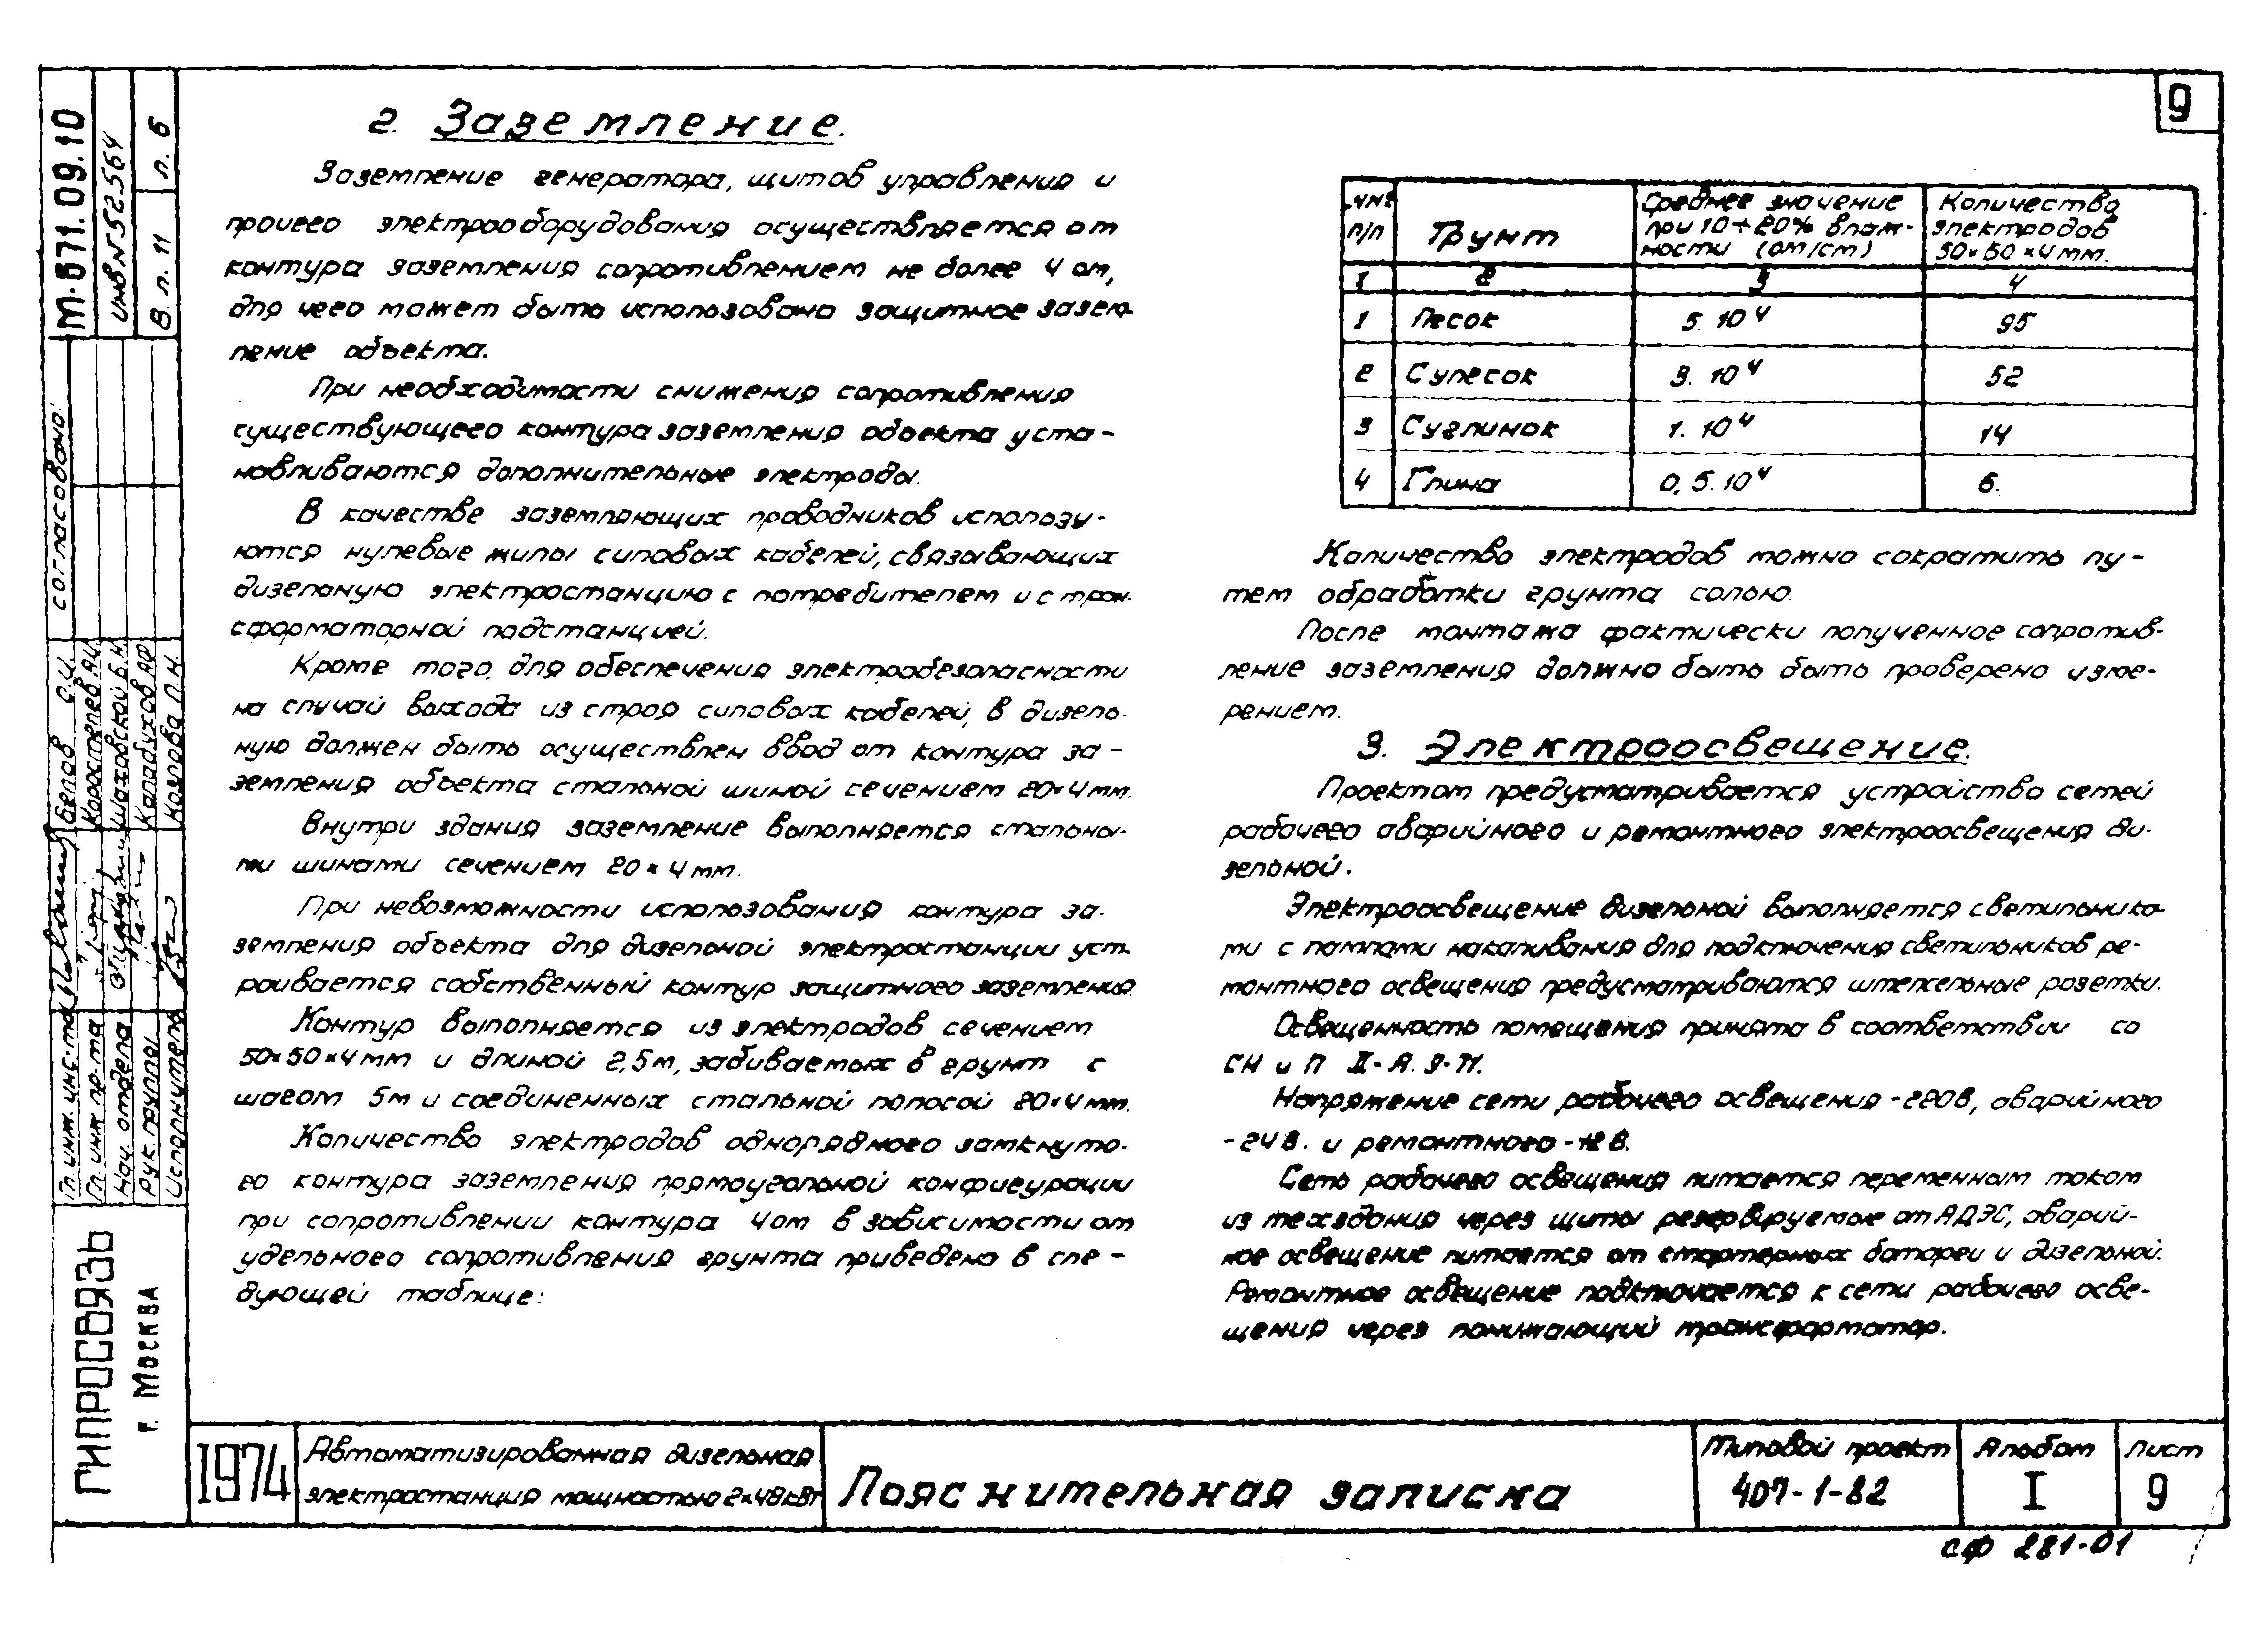 9
2. Заземление.
Заземление генератора, щитов управления и
прочего электрооборудования осуществляется от
контура заземления сопротивлением не более 4 ом,
для чего может быть использовано защитное зазем-
ление объекта.
При необходимости снижения сопротивления
существующего контура заземления объекта уста-
навливаются дополнительные электроды.
В качестве заземляющих проводников использу-
ются нулевые жилы силовых кабелей, связывающих
дизельную электростанцию с потребителем и с тран-
сформаторной подстанцией.
Кроме того, для обеспечения электробезопасности
на случай выхода из строя силовых кабелей, в дизель-
ную должен быть осуществлен ввод от контура за-
земления объекта стальной шиной сечением 20×4 мм.
Внутри здания заземление выполняется стальны-
ми шинами сечением 20×4 мм.
При невозможности использования контура за-
земления объекта для дизельной электростанции уст-
раивается собственный контур защитного заземления.
Контур выполняется из электродов сечением
50×50×4 мм и длиной 2,5 м, забиваемых в грунт с
шагом 5 м и соединенных стальной полосой 20×4 мм.
Количество электродов однорядного замкнуто-
го контура заземления прямоугольной конфигурации
при сопротивлении контура 4 ом в зависимости от
удельного сопротивления грунта приведено в сле-
дующей таблице:
№№ п/п | Грунт | Среднее значение при 10÷20% влаж-ности (ом/см) | Количество электродов 50×50×4 мм.
1 | 2 | 3 | 4
1 | Песок | 5.10⁴ | 95
2 | Супесок | 3.10⁴ | 52
3 | Суглинок | 1.10⁴ | 14
4 | Глина | 0,5.10⁴ | 6.
Количество электродов можно сократить пу-
тем обработки грунта солью.
После монтажа фактически полученное сопротив-
ление заземления должно быть быть проверено изме-
рением.
3. Электроосвещение.
Проектом предусматривается устройство сетей
рабочего аварийного и ремонтного электроосвещения ди-
зельной.
Электроосвещение дизельной выполняется светильника-
ми с лампами накаливания для подключения светильников ре-
монтного освещения предусматриваются штепсельные розетки.
Освещенность помещения принята в соответствии со
СН и П II-А. 9-71.
Напряжение сети рабочего освещения -220 в, аварийного
-24 в. и ремонтного -12 в.
Сеть рабочего освещения питается переменным током
из техздания через щиты резервируемые от АДЭС, аварий-
ное освещение питается от стартерных батареи и дизельной.
Ремонтное освещение подключается к сети рабочего осве-
щения через понижающий трансформатор.
1974
Автоматизированная дизельная
электростанция мощностью 2×48 кВт
Пояснительная записка
Типовой проект
407-1-82
Альбом
I
Лист
9
СФ 281-01
т.571.09.10
инв N 552.564
В. л. 11
л. 6
согласовано:
Гл. инж. инс-та
Белов
Гл. инж. пр-та
Коростелев
Нач. отдела
Шаховской Б.Н.
Рук. группы
Исполнитель
Козлова Л.Н.
ГИПРОСВЯЗЬ
г. Москва